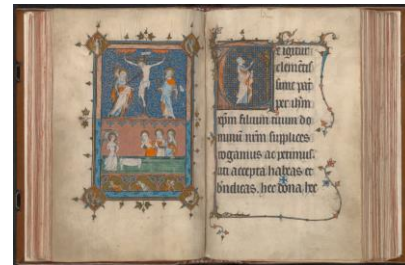 Te igitur
clementis
sime pat
per ihm
xpm filium tuum do
minum nrm supplices
rogamus ac petimus.
uti accepta habeas et
bndicas. hec dona. hec